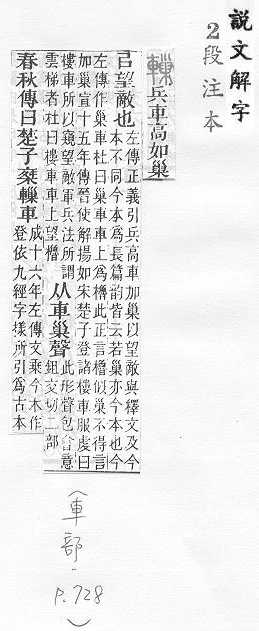 說文解字
2段注本
轈 兵車高如巢
㠯望敵也
左傳正義引兵高車加巢以望敵與釋文及今
本不同今本爲長篇韵皆云若巢亦今本也今
左傳作巢車杜曰巢車車上爲櫓此正言櫓似巢不得言
加巢宣十五年傳晉使解揚如宋楚子登諸樓車服虔曰
樓車所以窺望敵軍兵法所謂
雲梯者杜曰樓車車上望櫓
从車巢聲
此形聲包會意
鉏交切二部
春秋傳曰楚子椉轈車
成十六年左傳文乘今本作
登依九經字樣所引爲古本
(車部-P.728)